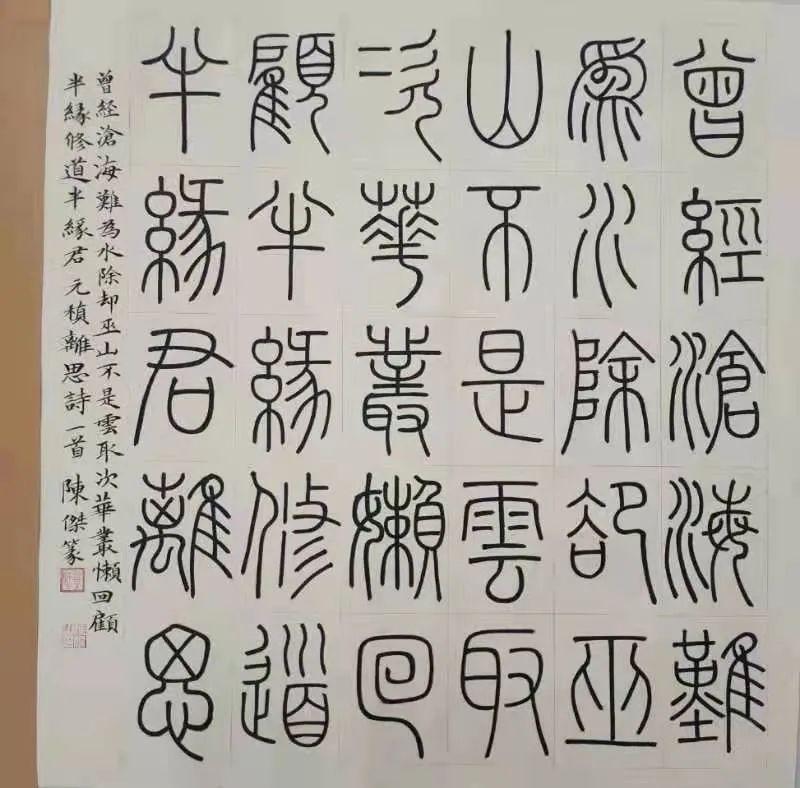 曾經滄海難
為水除卻巫
山不是雲取
次華叢嬾回
顧半緣修道
半緣君離思
曾經滄海難為水除却巫山不是雲取次華叢懶回顧
半緣修道半緣君 元稹離思詩一首 陳傑篆